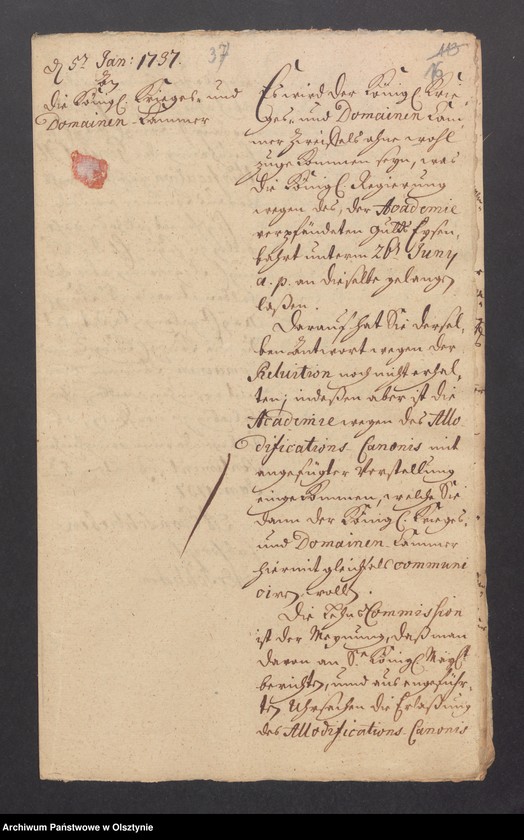 d 5t Jan: 1737.
37
113
15
An
die Königl. Krieges- und
Domainen-Cammer
Es wird der Königl. Krie-
ges- und Domainen Cam-
mer zweiffels ohne wohl
zugekommen seyn, was
die Königl. Regierung
wegen des, der Academie
verpfändeten Guths Eysen-
bahrt unterm 26t Juny
a. p. an dieselbe gelangen
laßen.
Darauf hat Sie dersel-
ben Antwort wegen der
Reluition noch nicht erhal-
ten; indeßen aber ist die
Academie wegen des Allo-
difications-Canonis mit
angefügter Vorstellung
eingekommen, welche Sie
dann der Königl. Krieges-
und Domainen-Cammer
hiermit gleichfals communi
ciren wollen.
Die LehnsCommission
ist der Meynung, daß man
davon an Se Königl. Mayt
berichten, und aus angeführ-
ten Uhrsachen die Erlaßung
des Allodifications-Canonis
Archiwum Państwowe w Olsztynie